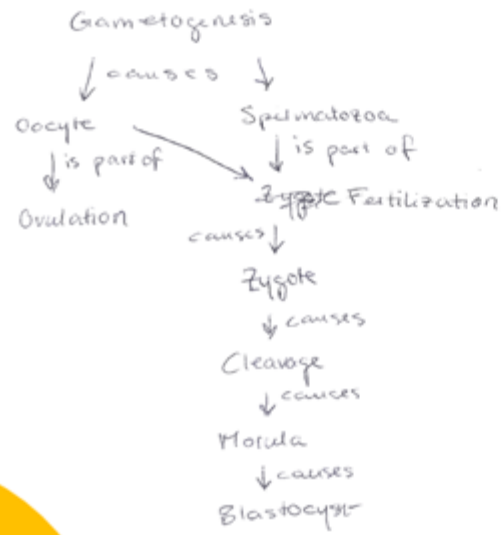 Gametogenesis
causes
Oocyte Spermatozoa
is part of is part of
Ovulation Fertilization
causes
Zygote
causes
Cleavage
causes
Morula
causes
Blastocyst